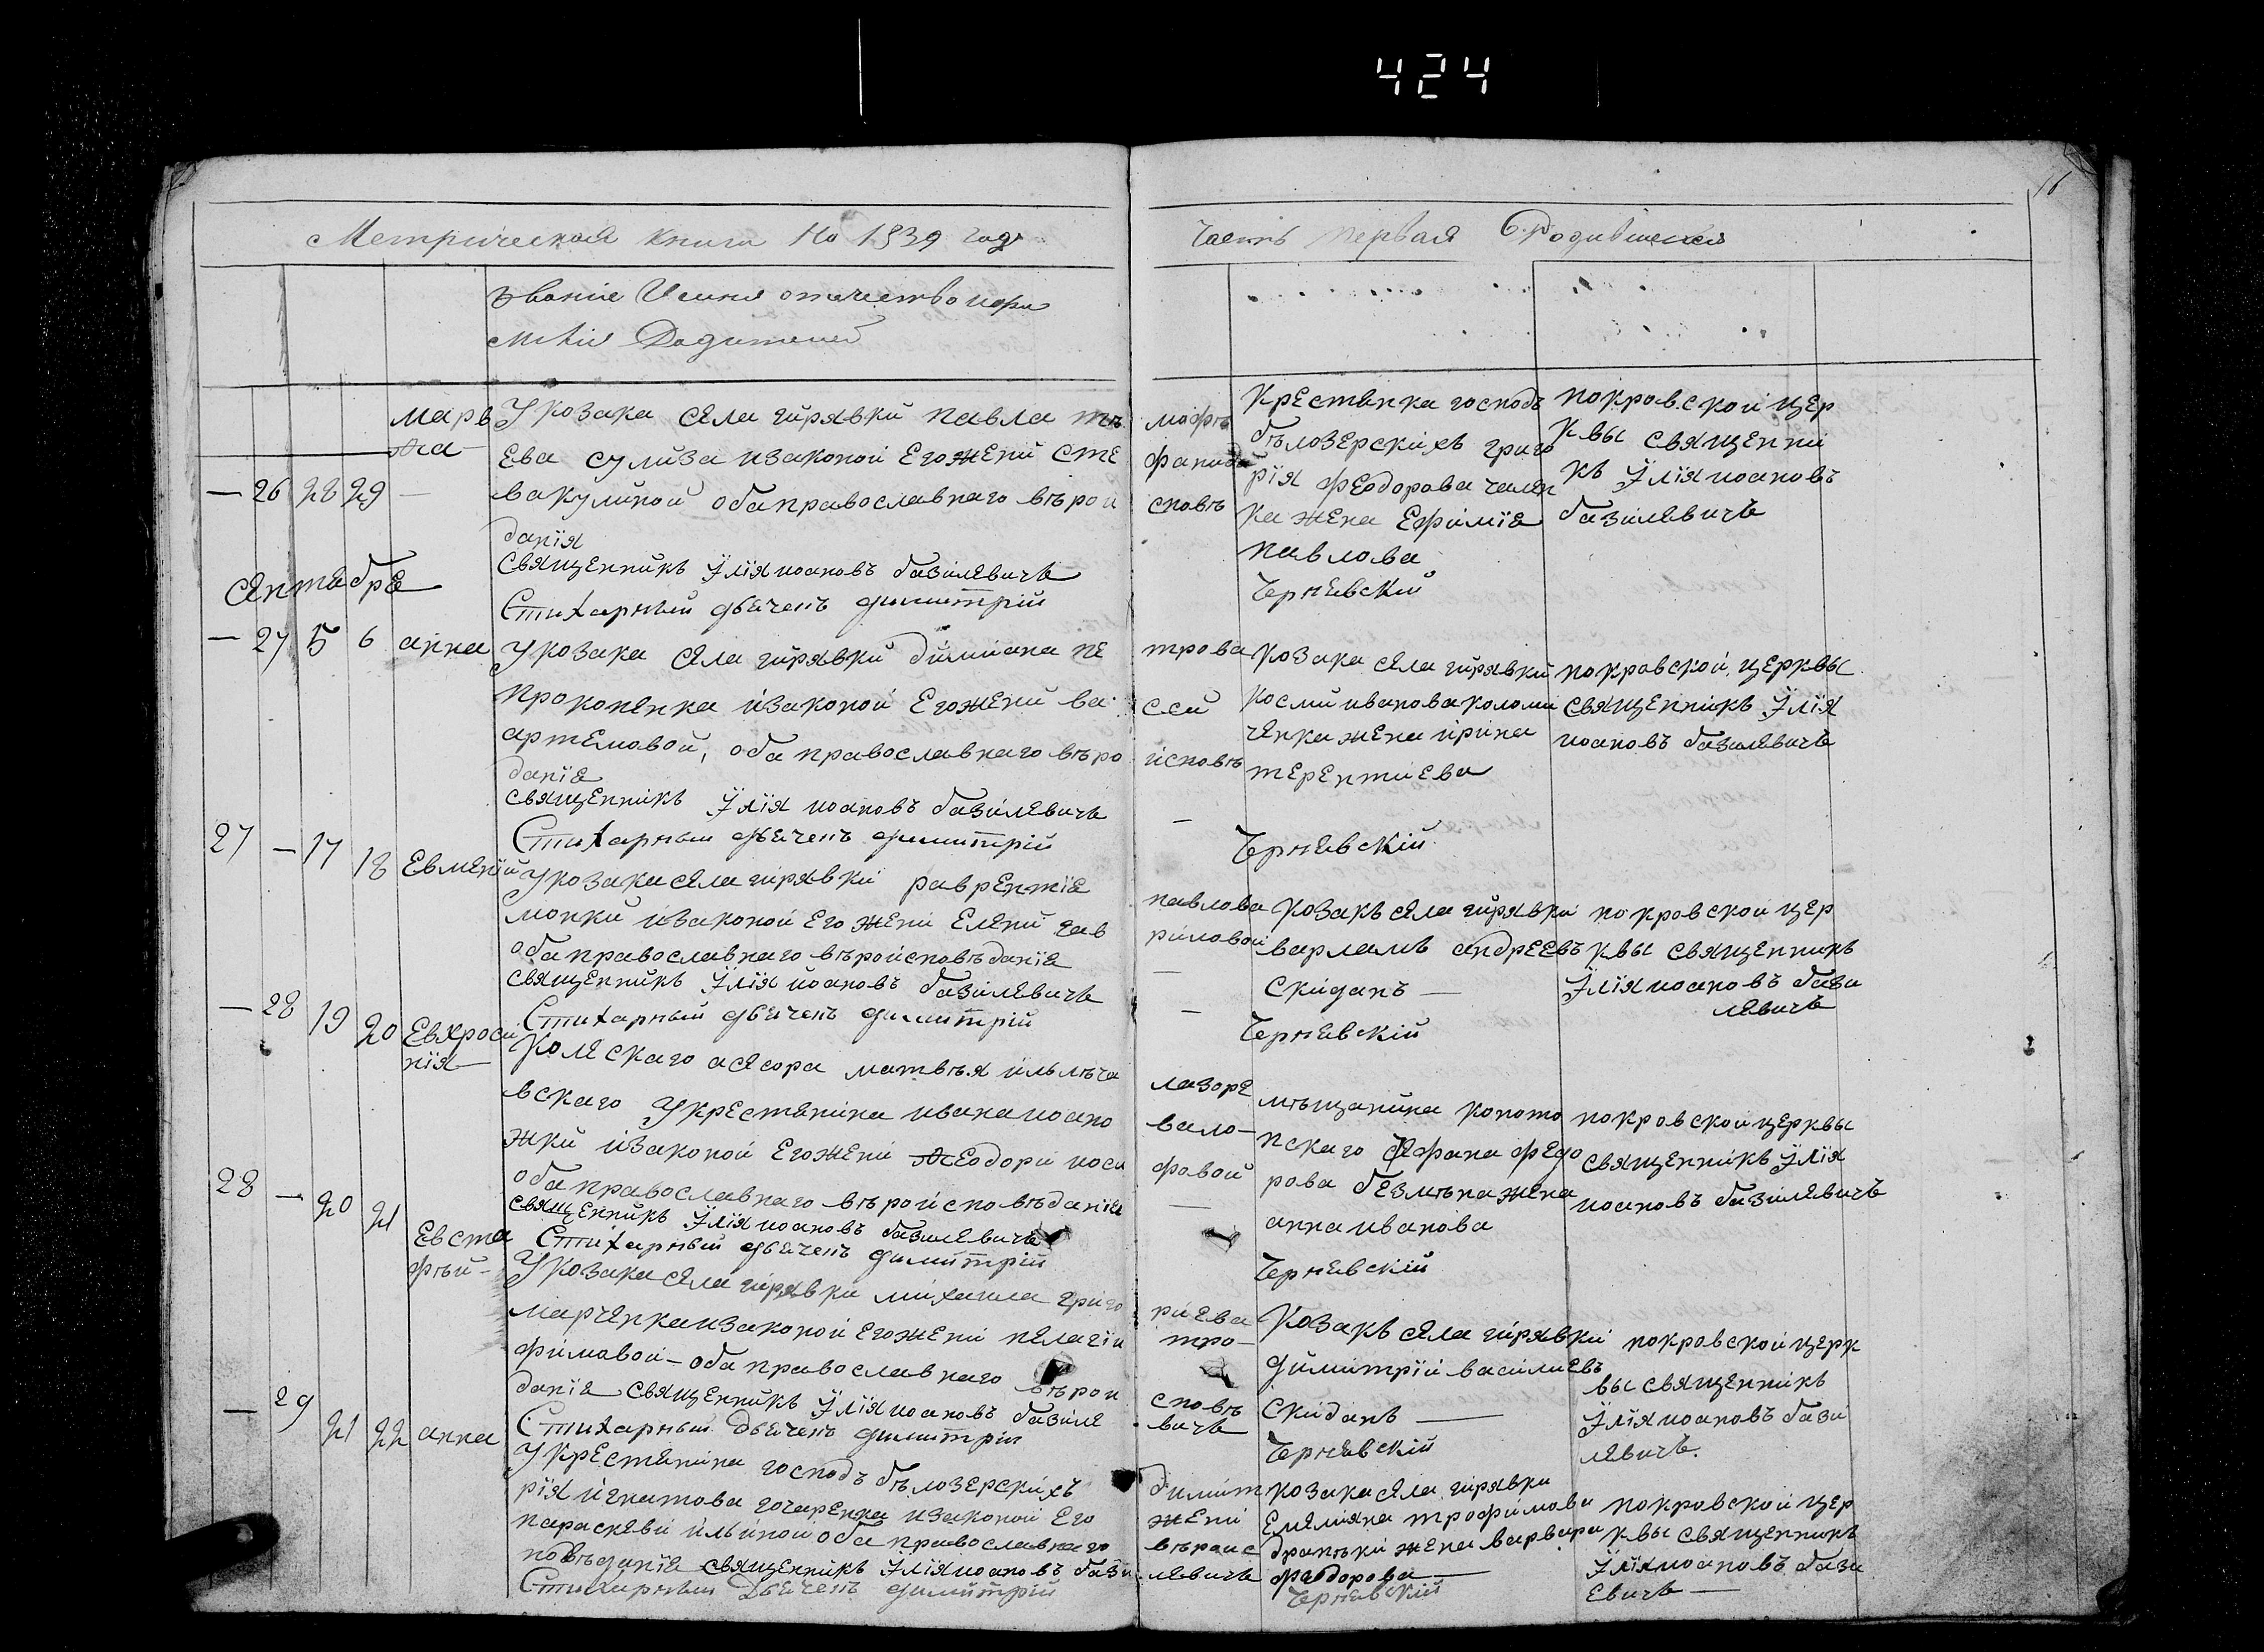 424
16
Метрическая книга на 1839 год
Часть первая О Родившихся
Званіе Имя отечество и фа
милія Родителей
марѳа
— 26 28 29 —
У козака села гирявки павла мат
ева сулиза и законой его жени сте
вакулиной оба православнаго вѣрои
данія
священникъ Їлїя иоановъ базилевичъ
Стихарный дьячекъ димитрій
фаниди
сповѣ
крестянка господъ
бѣлозерскихъ григо
рїя феодорова
ка жена Ефимїя
павлова
Чернявскій
покровской цер
квы священни
къ Їлїя иоановъ
базилевичъ
сентября
— 27 5 6 анна
У козака села гирявки димиана пе
прокопенка и законой его жени ва
артемовой, оба православнаго вѣро
данїя
священникъ Їлїя иоановъ базилевичъ
Стихарный дьячекъ димитрій
трова
ссы
исповѣ
—
козака села гирявки
косми иванова коломи
ченка жена ирина
терентиева
Чернявскій
покровской церквы
священникъ Їлїя
иоановъ базилевичъ
27 — 17 18 Евмений
У козака села гирявки лаврентїя
мопки и законой его жени елени гав
оба православнаго вѣроисповѣданїя
священникъ Їлїя иоановъ базилевичъ
Стихарный дьячекъ димитрій
павлова
риловой
—
—
козакъ села гирявки
варламъ андреевъ
скиданъ —
Чернявскій
покровской цер
квы священникъ
Їлїя иоановъ бази
левичъ
— 28 19 20 Евхроси
нїя —
Колескаго асесора матвѣя
вскаго У крестянина ивана иоано
жки и законой его жени ѳеодори иоси
оба православнаго вѣроисповѣданїя
священникъ Їлїя иоановъ базилевичъ
Стихарный дьячекъ димитрій
лазоре
вало —
фовой
—
мѣщанина коното
пскаго стефана федо
рова безмѣна жена
анна иванова
Чернявскій
покровской церквы
священникъ Їлїя
иоановъ базилевичъ
28 — 20 21 Евста
фѣй —
У козака села гирявки михаила григо
марченка и законой его жени пелагіи
фимовой — оба православнаго вѣрои
данїя священникъ Їлїя иоановъ базиле
Стихарный дьячекъ димитрій
риева
тро —
сповѣ
вичъ
козакъ села гирявки
димитрїй василиевъ
скиданъ —
Чернявскій
покровской церк
вы священникъ
Їлїя иоановъ бази
левичъ.
— 29 21 22 анна
У крестянина господъ бѣлозерскихъ
рїя игнатова гочаренка и законой его
параскеви ильиной оба православнаго
повѣданїя священникъ Їлїя иоановъ бази
Стихарный дьячекъ димитрій
димит
жени
вѣроис
левичъ
козака села гирявки
Емелияна трофимова
жена варвара
федорова —
Чернявскій
покровской цер
квы священникъ
Їлїя иоановъ бази
евичъ —